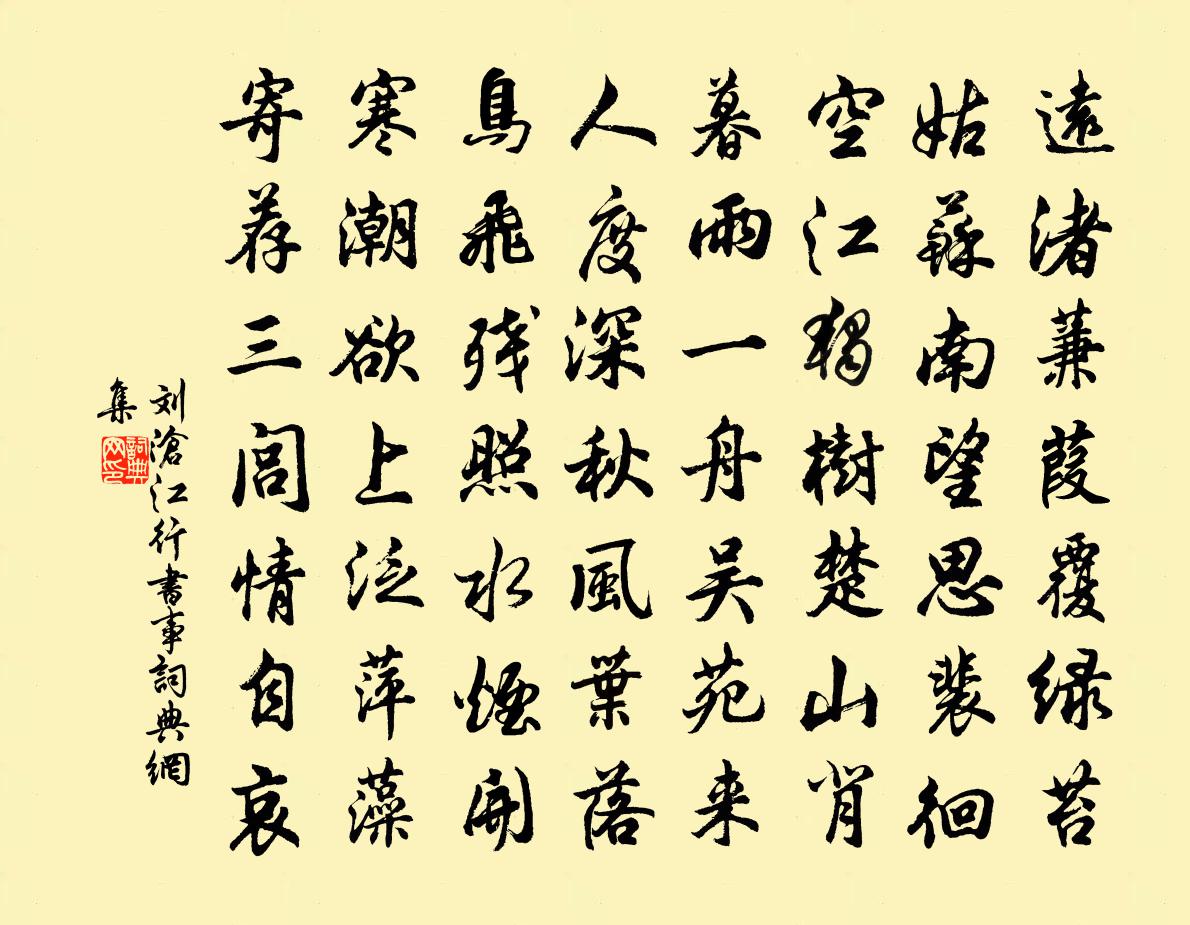 遠渚蒹葭覆绿苔
姑蘇南望思裴徊
空江獨樹楚山背
暮雨一舟吴苑来
人度深秋風葉落
鳥飛残照水煙開
寒潮欲上泛萍藻
寄荐三閭情自哀
刘滄江行書事詞典網
集
詞典網印